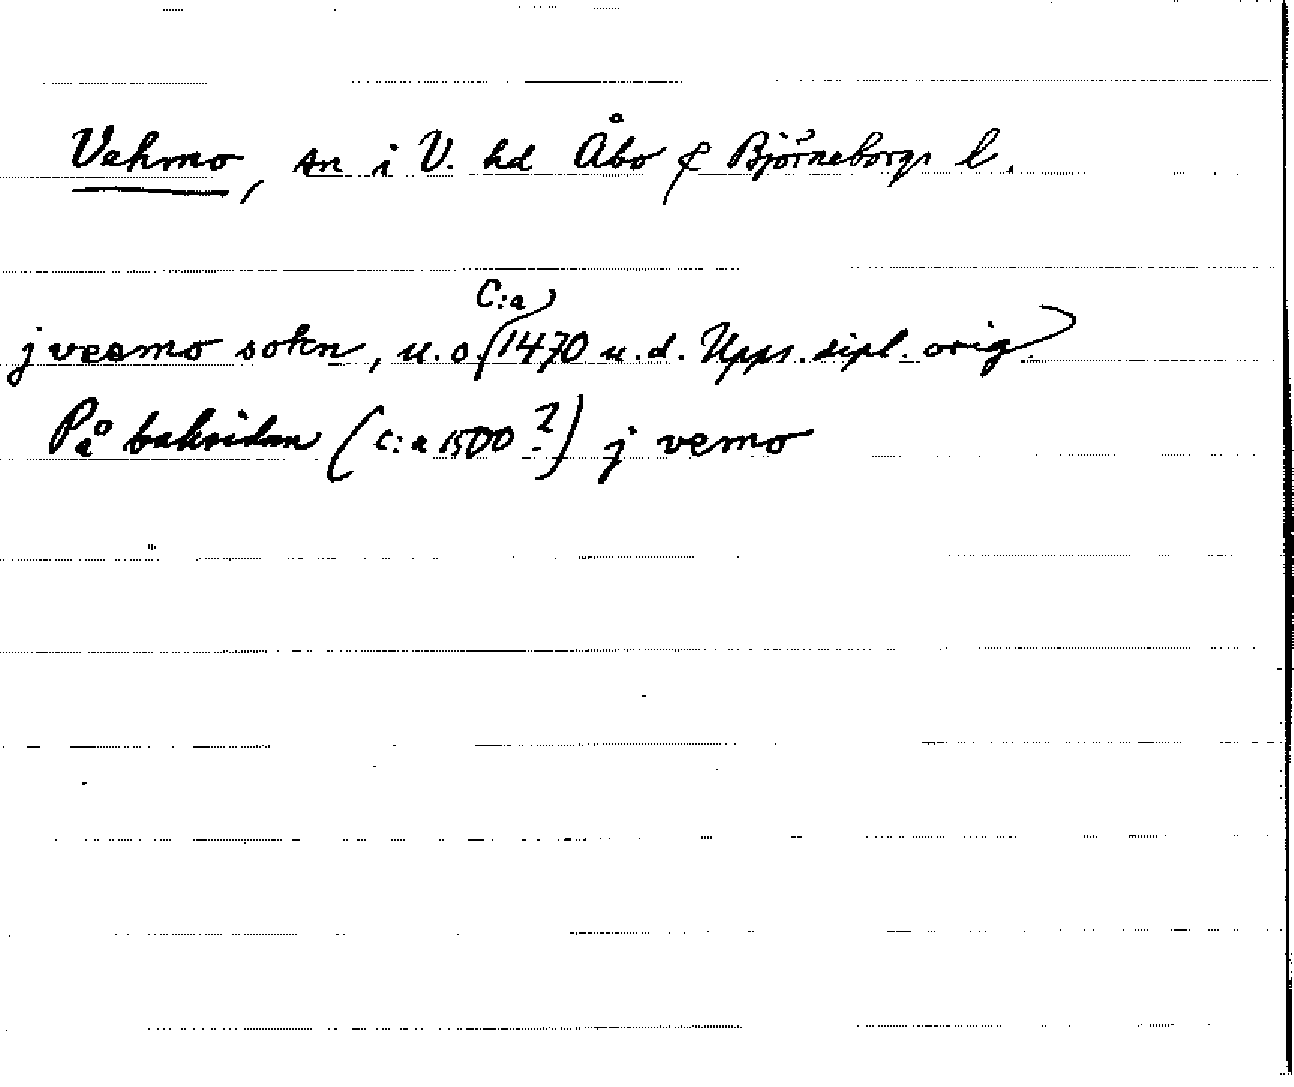 Vehmo, sn i V. hd Åbo & Björneborgs l.
j veemo sokn, u.o. (C:a 1470 u.d. Upps. dipl. orig.)
På baksidan (C:a 1500?) j vemo